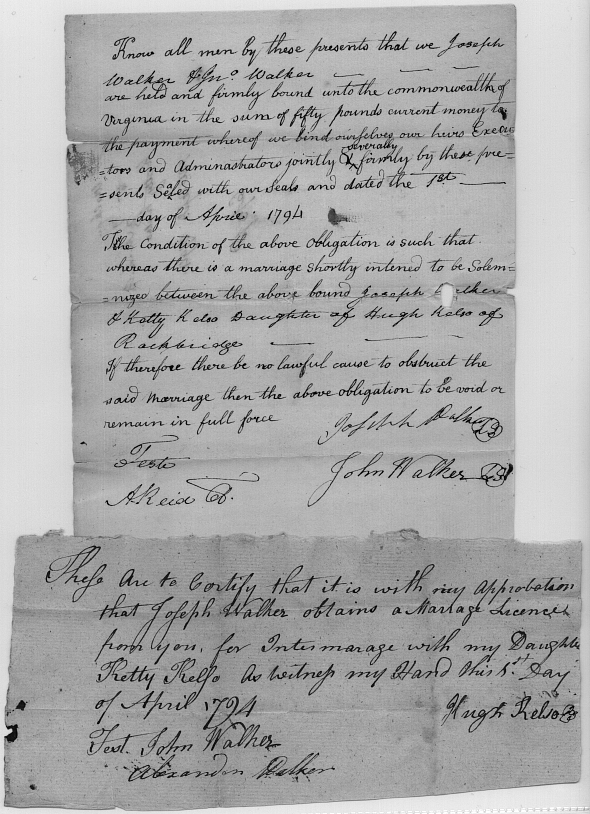 Know all men by these presents that we Joseph
Walker & Jnº Walker
are held and firmly bound unto the commonwealth of
Virginia in the sum of fifty pounds current money to
the payment whereof we bind ourselves our heirs Execu
=tors and Adminastrators jointly & severally firmly by these pre-
=sents Sealed with our Seals and dated the 1st
day of April 1794
The Condition of the above obligation is such that
whereas there is a marriage shortly intened to be Solem=
=nized between the above bound Joseph Walker
& Ketty Kelso Daughter of Hugh Kelso of
Rockbridge
If therefore there be no lawful cause to obstruct the
said marriage then the above obligation to be void or
remain in full force
Joseph Walker
Teste
John Walker
A Reid
These Are to Certify that it is with my Approbation
that Joseph Walker obtains a Mariage Licence
from you, for Intermarage with my Daughter
Ketty Kelso As witness my Hand this 1st Day
of April 1794
Hugh Kelso
Test. John Walker
Alexander Walker